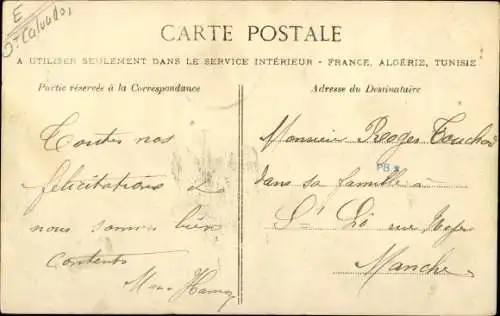 E
Calvados
CARTE POSTALE
A UTILISER SEULEMENT DANS LE SERVICE INTÉRIEUR - FRANCE, ALGÉRIE, TUNISIE
Partie réservée à la Correspondance
Adresse du Destinataire
Toutes nos
félicitations
nous sommes bien
contents
Monsieur Roger Touchar
PB
dans sa famille à
St Lô rue
Manche